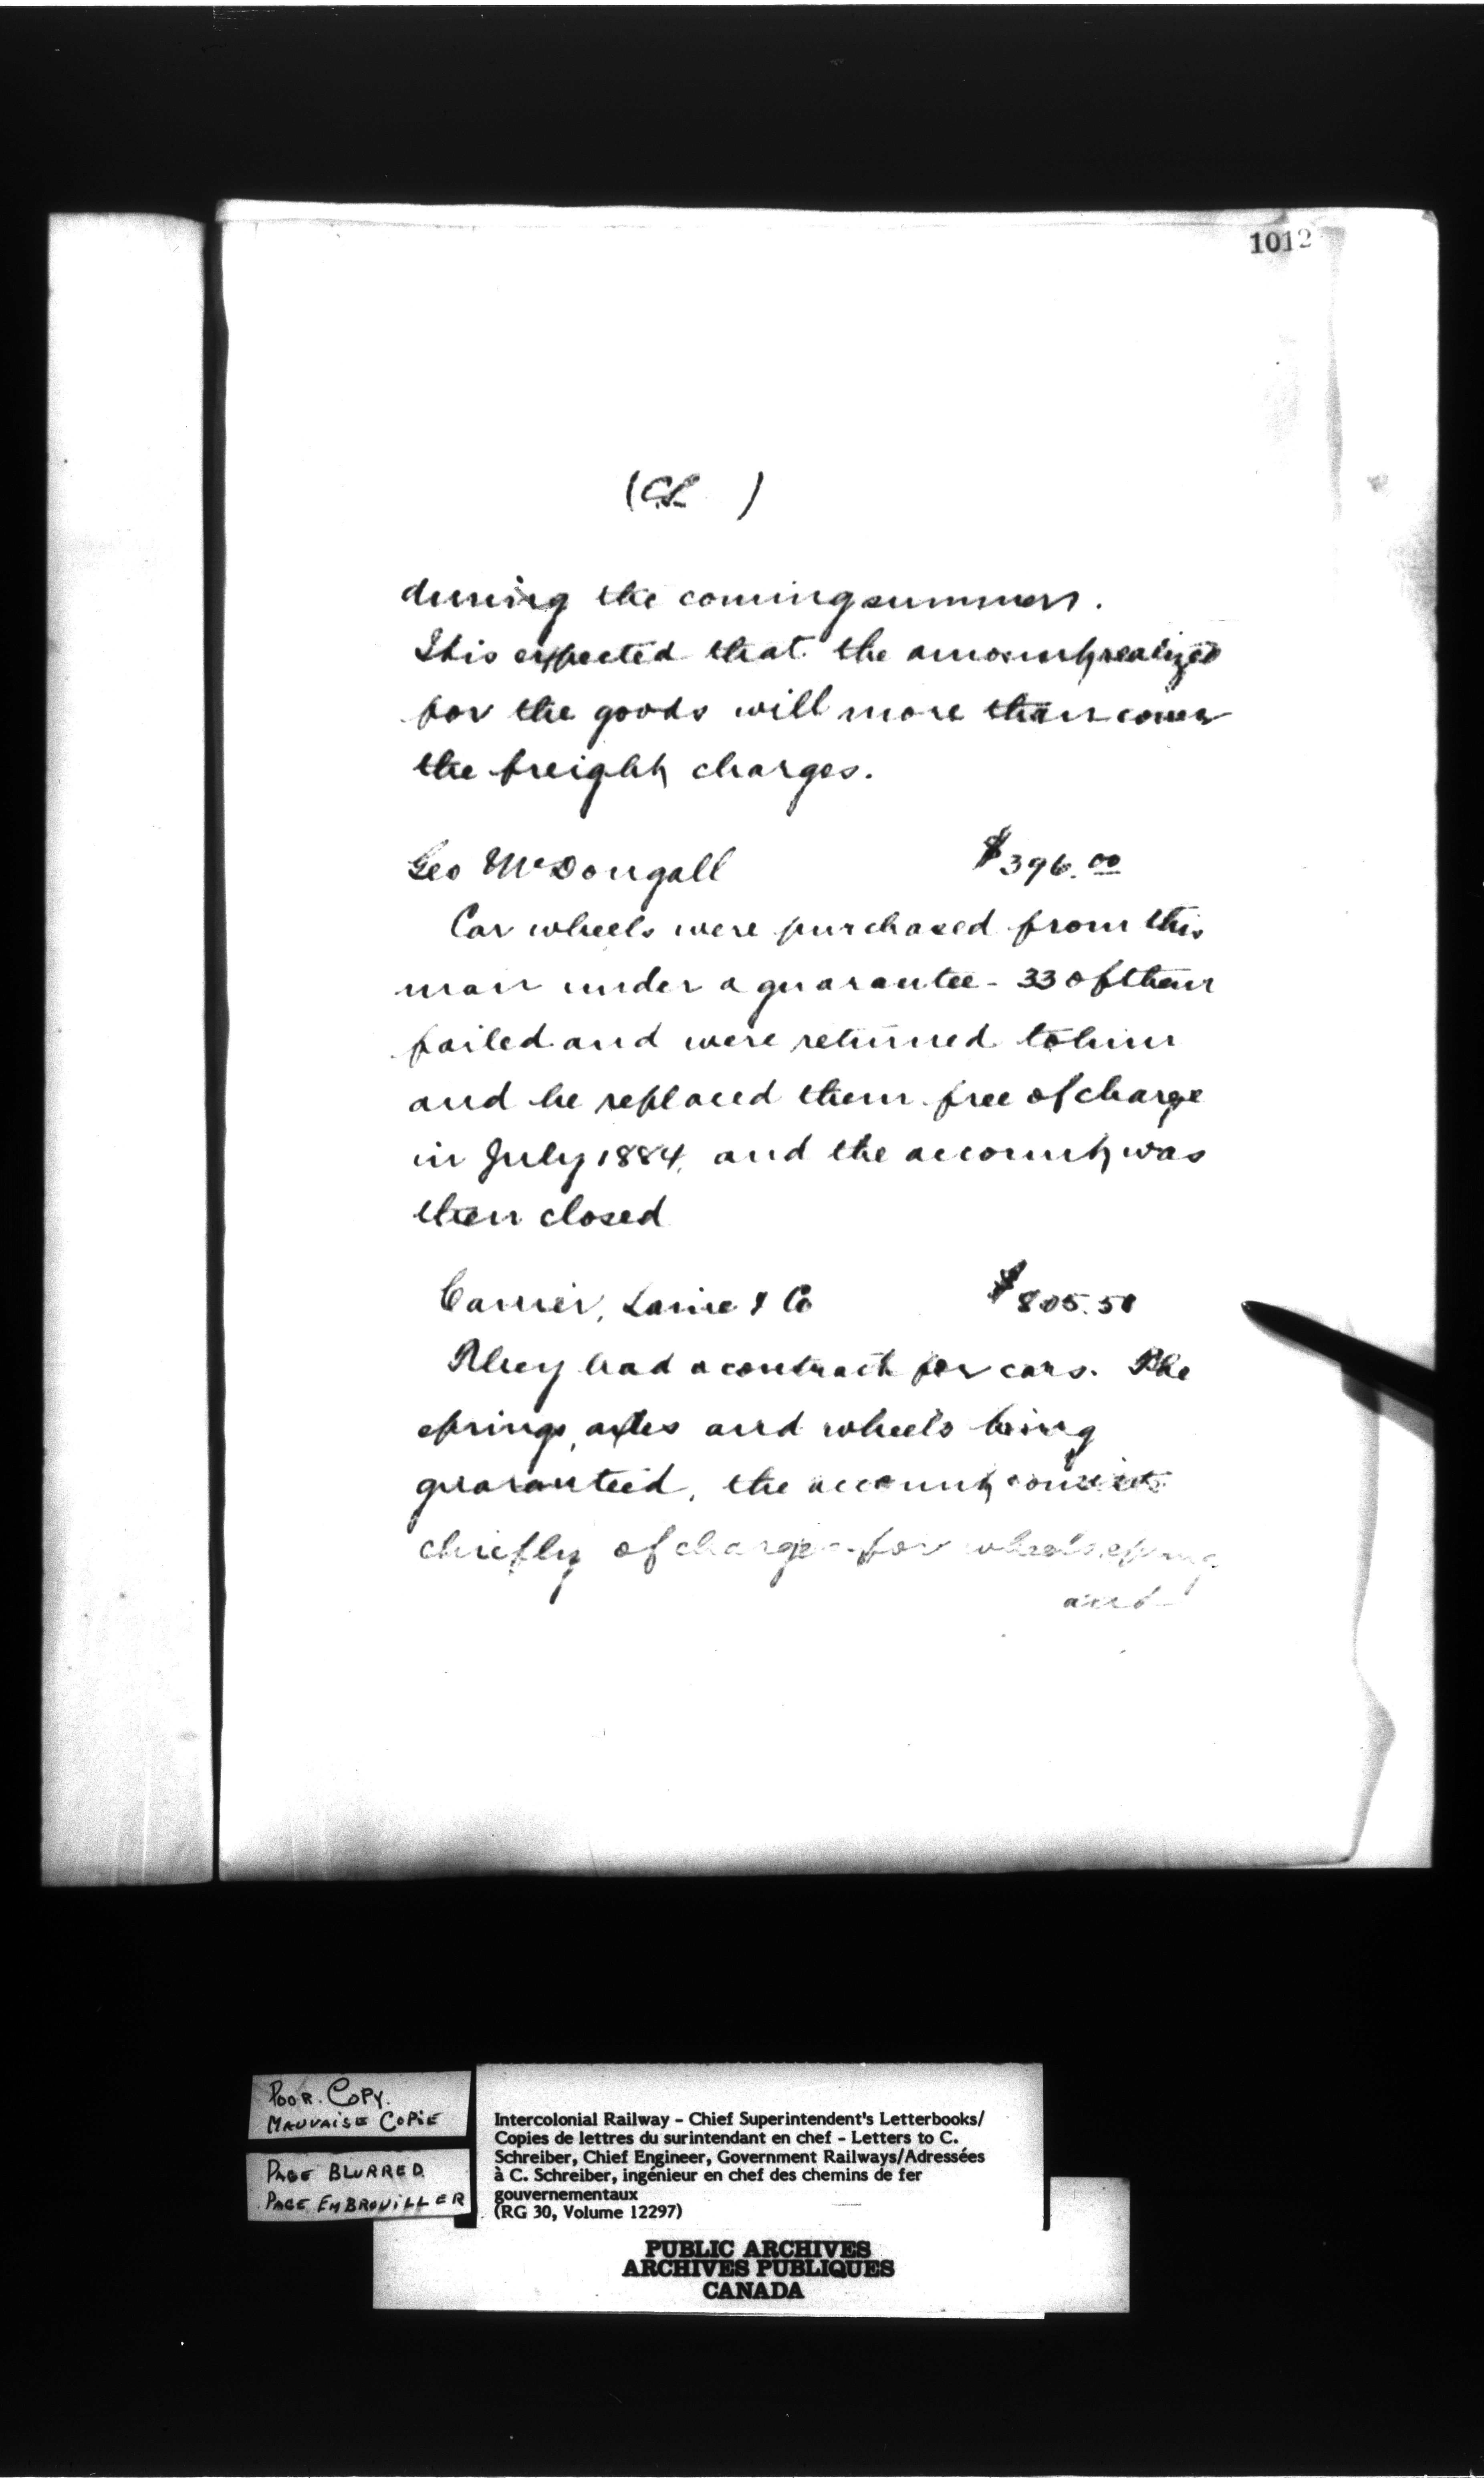 1012
(C.S. )
during the coming summer.
It is expected that the amount realized
for the goods will more than cover
the freight charges.
Geo McDougall $396.00
Car wheels were purchased from this
man under a guarantee - 33 of them
failed and were returned to him
and he replaced them free of charge
in July 1884, and the account was
then closed
Carrier, Laine & Co $805.50
They had a contract for cars. The
springs, axles and wheels being
guaranteed, the account consists
chiefly of charges for wheels, spring
and
POOR. COPY.
MAUVAISE COPIE
PAGE BLURRED
PAGE EMBROUILLER
Intercolonial Railway – Chief Superintendent's Letterbooks/
Copies de lettres du surintendant en chef – Letters to C.
Schreiber, Chief Engineer, Government Railways/Adressées
à C. Schreiber, ingénieur en chef des chemins de fer
gouvernementaux
(RG 30, Volume 12297)
PUBLIC ARCHIVES
ARCHIVES PUBLIQUES
CANADA